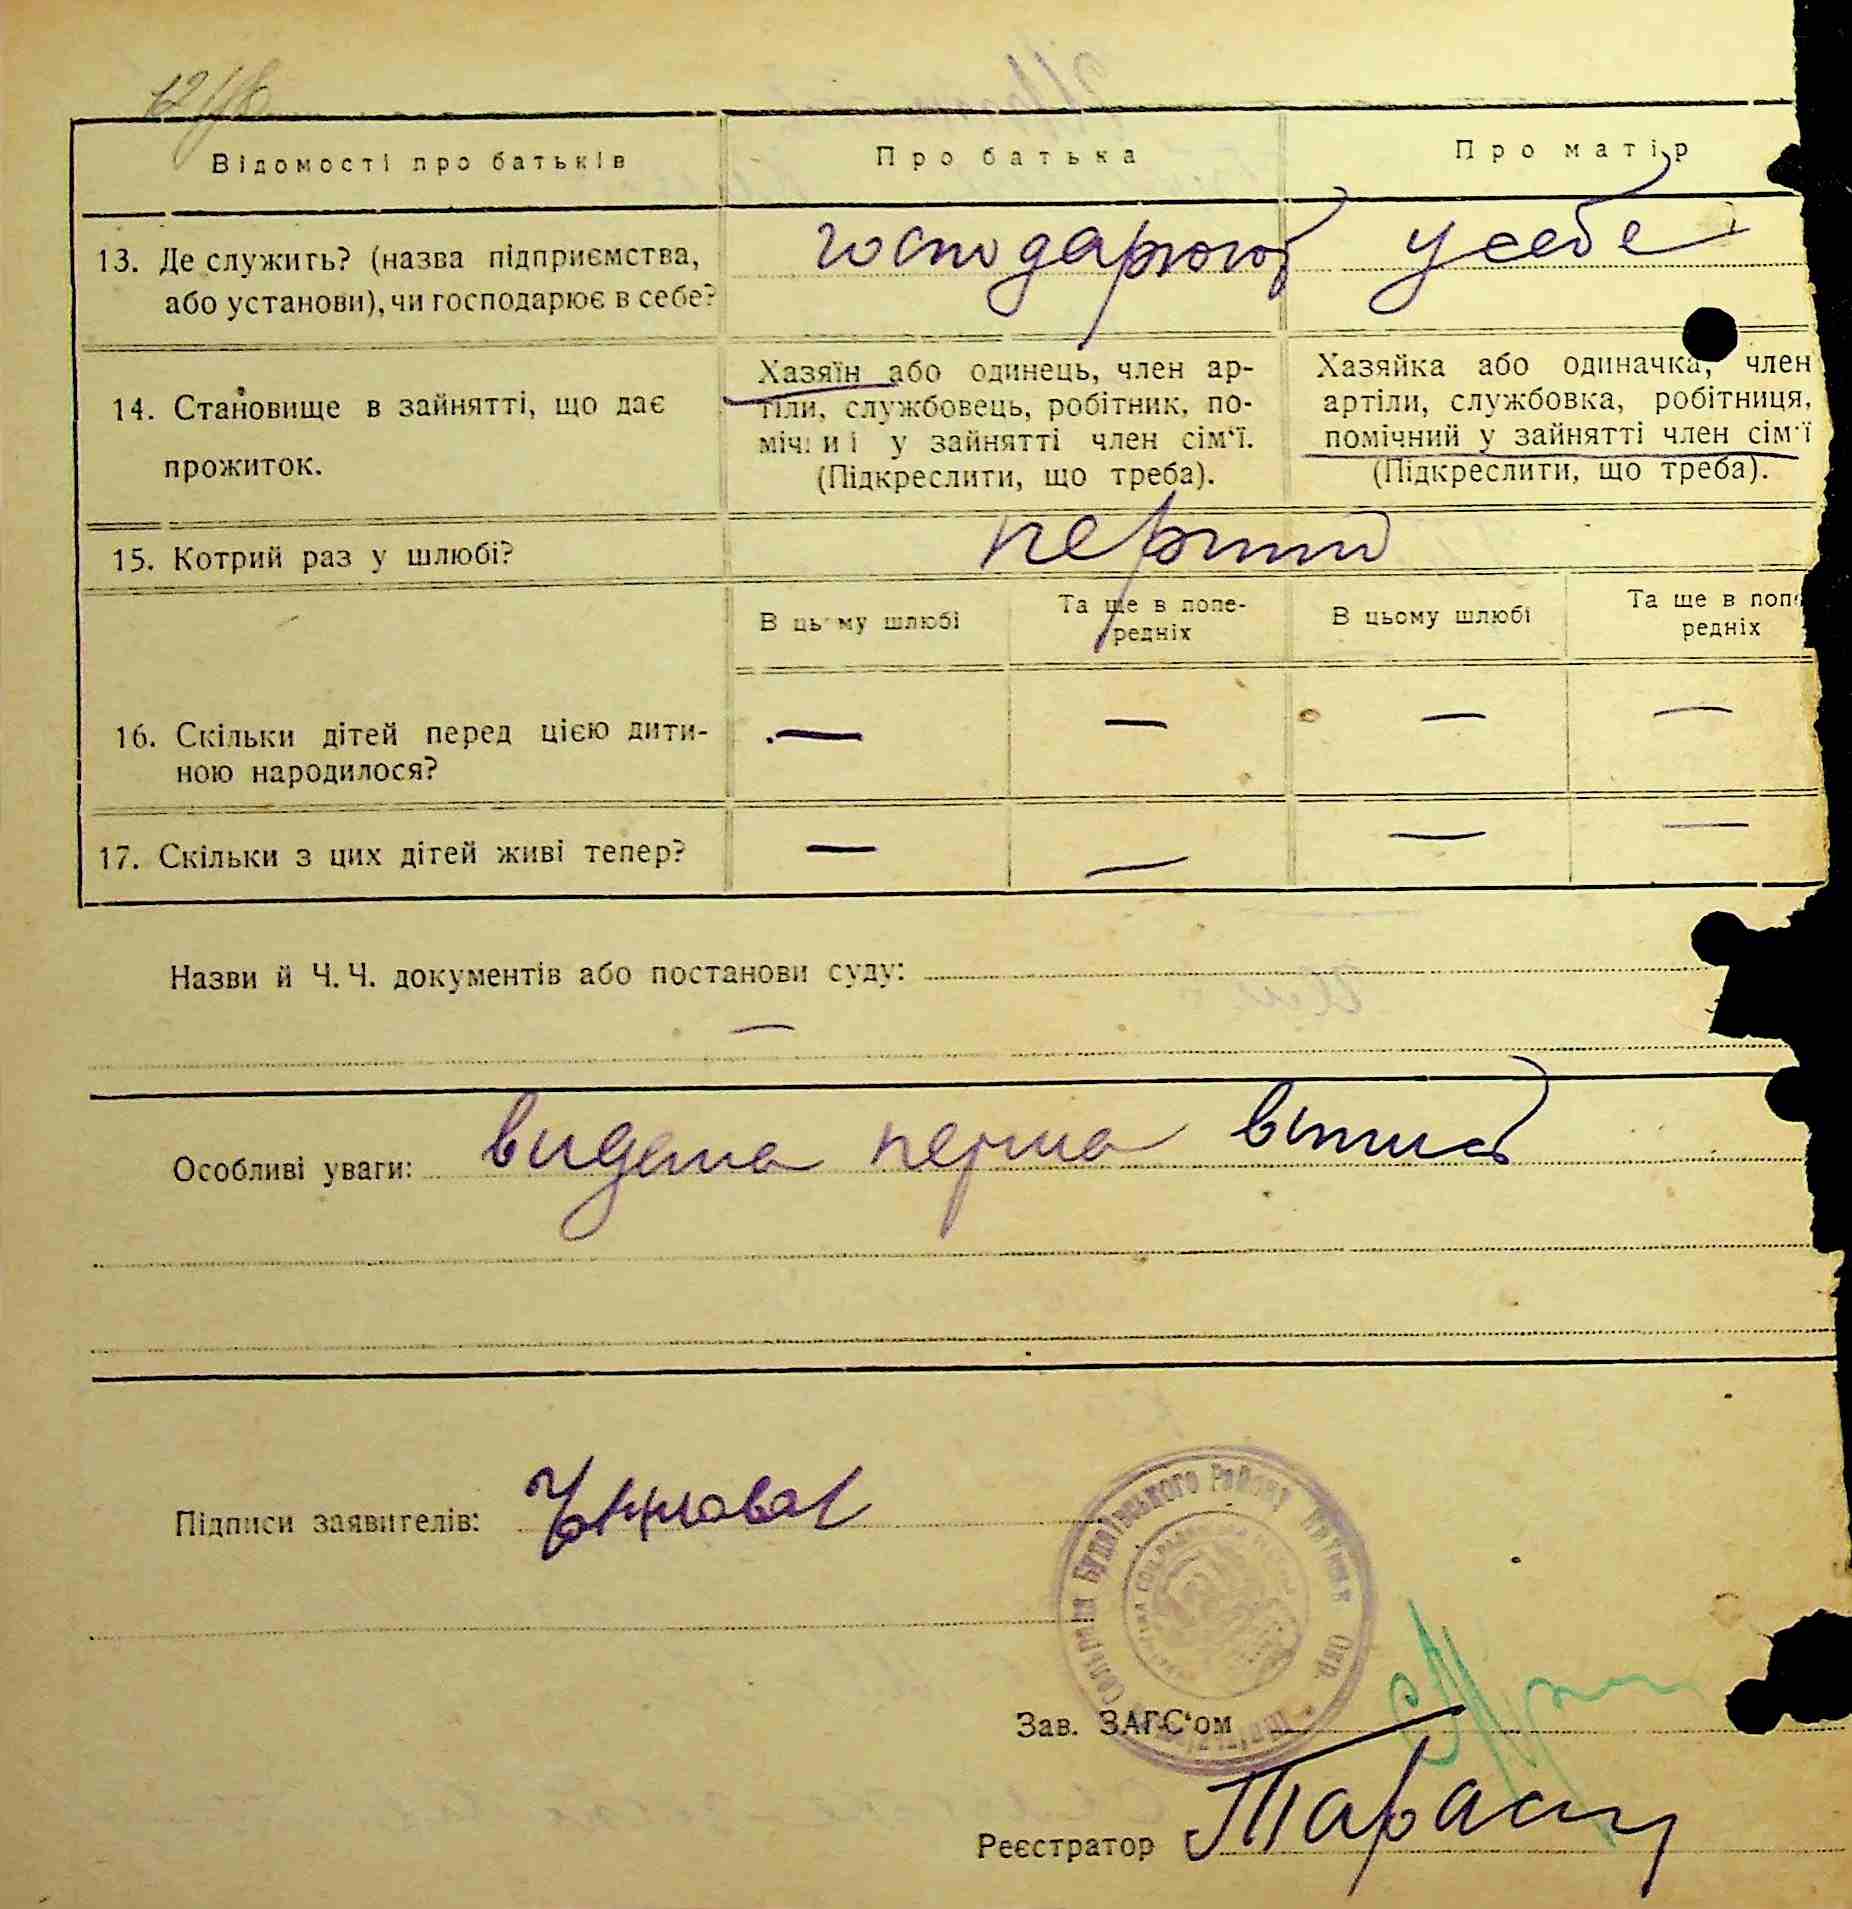 Відомості про батьків
Про батька
Про матір
13. Де служить? (назва підприємства,
або установи), чи господарює в себе?
господарюют у себе
14. Становище в зайнятті, що дає
прожиток.
Хазяїн або одинець, член ар-
тіли, службовець, робітник, по-
мічниі у зайнятті член сім'ї.
(Підкреслити, що треба).
Хазяйка або одиначка, член
артіли, службовка, робітниця,
помічний у зайнятті член сім'ї
(Підкреслити, що треба).
15. Котрий раз у шлюбі?
перший
В цьому шлюбі
Та ще в попе-
редніх
В цьому шлюбі
Та ще в попе
редніх
16. Скільки дітей перед цією дити-
ною народилося?
— — — —
17. Скільки з цих дітей живі тепер?
— — — —
Назви й Ч. Ч. документів або постанови суду:
—
Особливі уваги: видана перша
Підписи заявителів:
Буднівського Району
Окр.
Зав. ЗАГС'ом
Реєстратор